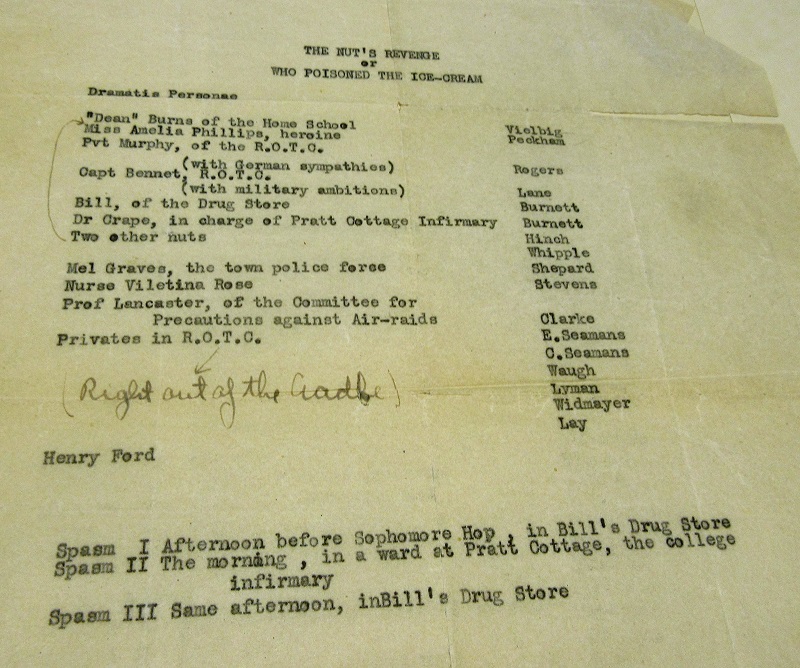 THE NUT'S REVENGE
or
WHO POISONED THE ICE-CREAM
Dramatis Personae
"Dean" Burns of the Home School Vielbig
Miss Amelia Phillips, heroine Peckham
Pvt Murphy, of the R.O.T.C.
(with German sympathies) Rogers
Capt Bennet, R.O.T.C.
(with military ambitions) Lane
Bill, of the Drug Store Burnett
Dr Crape, in charge of Pratt Cottage Infirmary Burnett
Two other nuts Hinch
Whipple
Mel Graves, the town police force Shepard
Nurse Viletina Rose Stevens
Prof Lancaster, of the Committee for
Precautions against Air-raids Clarke
Privates in R.O.T.C. E.Seamans
C.Seamans
Waugh
(Right out of the Cradle) Lyman
Widmayer
Lay
Henry Ford
Spasm I Afternoon before Sophomore Hop , in Bill's Drug Store
Spasm II The morning , in a ward at Pratt Cottage, the college
infirmary
Spasm III Same afternoon, inBill's Drug Store